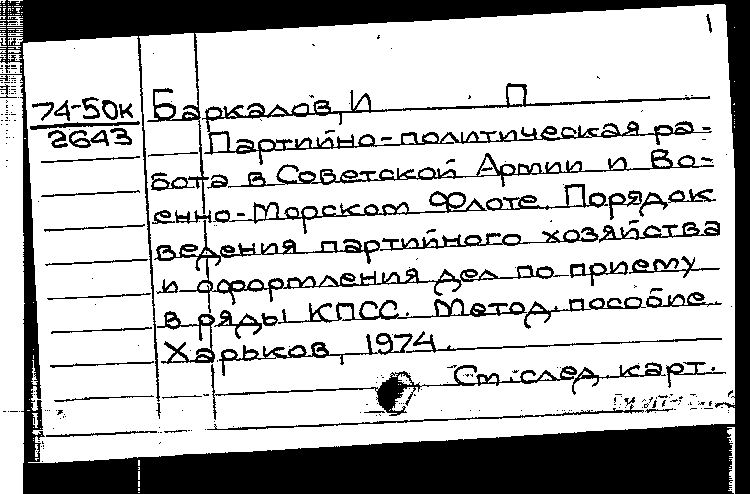 1
74-50к Баркалов, И П
2643 Партийно-политическая ра-
бота в Советской Армии и Во-
енно-Морском Флоте. Порядок
ведения партийного хозяйства
и оформления дел по приему
в ряды КПСС. Метод. пособие.
Харьков, 1974.
См. след. карт.